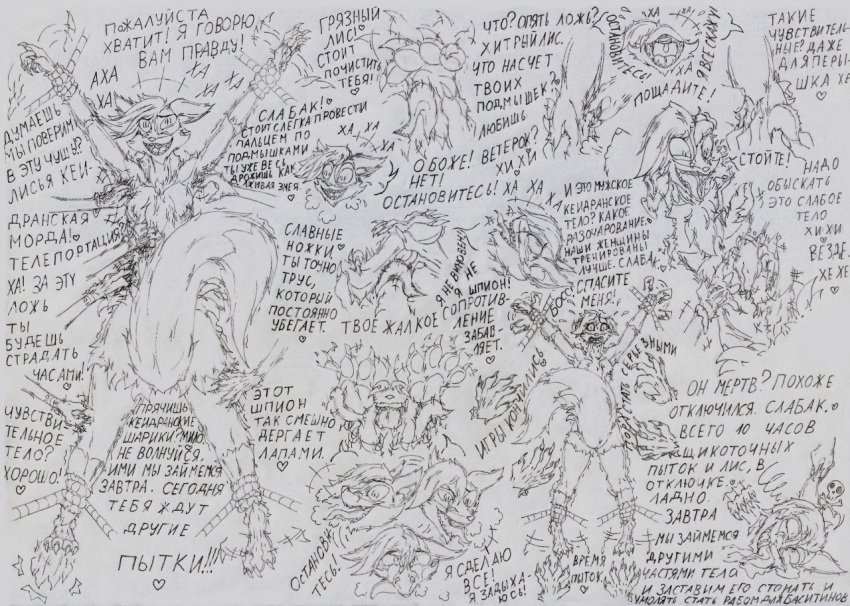 ПОЖАЛУЙСТА
ХВАТИТ! Я ГОВОРЮ
ВАМ ПРАВДУ!
АХА
ХА
ХА ХА
ДУМАЕШЬ
МЫ ПОВЕРИМ
В ЭТУ ЧУШЬ?
ЛИСЬЯ КЕИ-
ДРАНСКАЯ
МОРДА!
ТЕЛЕПОРТАЦИЯ?
ХА! ЗА ЭТУ
ЛОЖЬ
ТЫ
БУДЕШЬ
СТРАДАТЬ
ЧАСАМИ!
ЧУВСТВИ-
ТЕЛЬНОЕ
ТЕЛО?
ХОРОШО!
ПРЯЧИШЬ
КЕИДРАНСКИЕ
ШАРИКИ?
НЕ ВОЛНУЙСЯ,
ИМИ МЫ ЗАЙМЕМСЯ
ЗАВТРА. СЕГОДНЯ
ТЕБЯ ЖДУТ
ДРУГИЕ
ПЫТКИ!!!
СЛАБАК!
СТОИТ СЛЕГКА ПРОВЕСТИ
ПАЛЬЦЕМ ПО
ПОДМЫШКАМИ
ТЫ УЖЕ ВЕСЬ
ДРОЖИШЬ КАК
ЖИВАЯ ЗМЕЯ.
ГРЯЗНЫЙ
ЛИС!
СТОИТ
ПОЧИСТИТЬ
ТЕБЯ!
ХА ХА
СЛАВНЫЕ
НОЖКИ.
ТЫ ТОЧНО
ТРУС,
КОТОРЫЙ
ПОСТОЯННО
УБЕГАЕТ.
ЭТОТ
ШПИОН
ТАК СМЕШНО
ДЕРГАЕТ
ЛАПАМИ.
ЧТО? ОПЯТЬ ЛОЖЬ?
ХИТРЫЙ ЛИС.
ЧТО НАСЧЕТ
ТВОИХ
ПОДМЫШЕК?
ЛЮБИШЬ
ВЕТЕРОК?
ХИ ХИ
О БОЖЕ!
НЕТ!
ОСТАНОВИТЕСЬ! ХА ХА
Я НЕ ВИНОВЕН!
Я НЕ
ШПИОН!
ТВОЕ ЖАЛКОЕ СОПРОТИВ-
ЛЕНИЕ
ЗАБАВ-
ЛЯЕТ.
ХА
ХА
ОСТАНОВИТЕСЬ!
Я ВСЕ СКАЖУ!
ПОЩАДИТЕ!
ТАКИЕ
ЧУВСТВИТЕЛЬ-
НЫЕ? ДАЖЕ
ДЛЯ ПЕРЫ-
ШКА ХЕ
СТОЙТЕ!
НАДО
ОБЫСКАТЬ
ЭТО СЛАБОЕ
ТЕЛО
ХИ ХИ
ВЕЗДЕ.
ХЕ ХЕ
И ЭТО МУЖСКОЕ
КЕИДРАНСКОЕ
ТЕЛО? КАКОЕ
РАЗОЧАРОВАНИЕ.
НАШИ ЖЕНЩИНЫ
ТРЕНИРОВАНЫ
ЛУЧШЕ. СЛАБАК.
СПАСИТЕ
МЕНЯ!
ИГРЫ КОНЧИЛИСЬ
ПОРА СТАТЬ СЕРЬЕЗНЫМИ
ВРЕМЯ
ПЫТОК
ОСТАНОВИ-
ТЕСЬ!
Я СДЕЛАЮ
ВСЕ!
Я ЗАДЫХА-
ЮСЬ!
ОН МЕРТВ? ПОХОЖЕ
ОТКЛЮЧИЛСЯ. СЛАБАК.
ВСЕГО 10 ЧАСОВ
ЩИКОТОЧНЫХ
ПЫТОК И ЛИС, В
ОТКЛЮЧКЕ.
ЛАДНО.
ЗАВТРА
МЫ ЗАЙМЕМСЯ
ДРУГИМИ
ЧАСТЯМИ ТЕЛА
И ЗАСТАВИМ ЕГО СТОНАТЬ И
УМОЛЯТЬ СТАТЬ РАБОМ ДЛЯ БАСИТИНОВ